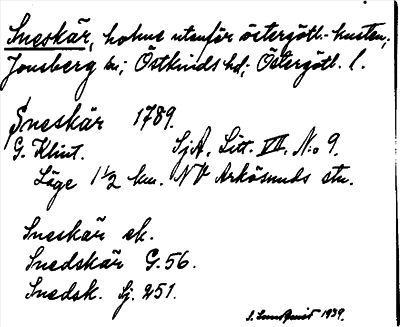 Sneskär, holme utanför östergötl. kusten,
Jonsberg sn; Östkinds hd; Östergötl. l.
Sneskär 1789.
G. Klint. SjA. Litt. VII. N:o 9.
Läge 1 1/2 km. NV Arkösunds stn.
Sneskär ek.
Snedskär G.56.
Snedsk. Sj. 251.
1939.